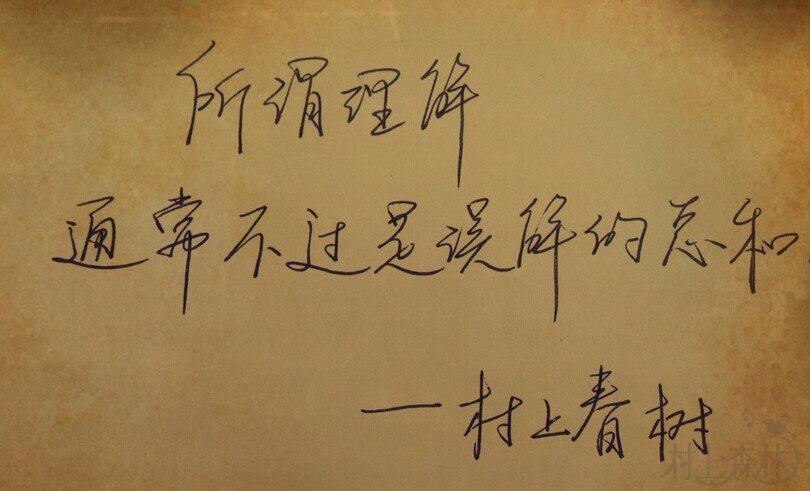 所谓理解
通常不过是误解的总和.
——村上春树
村上森林